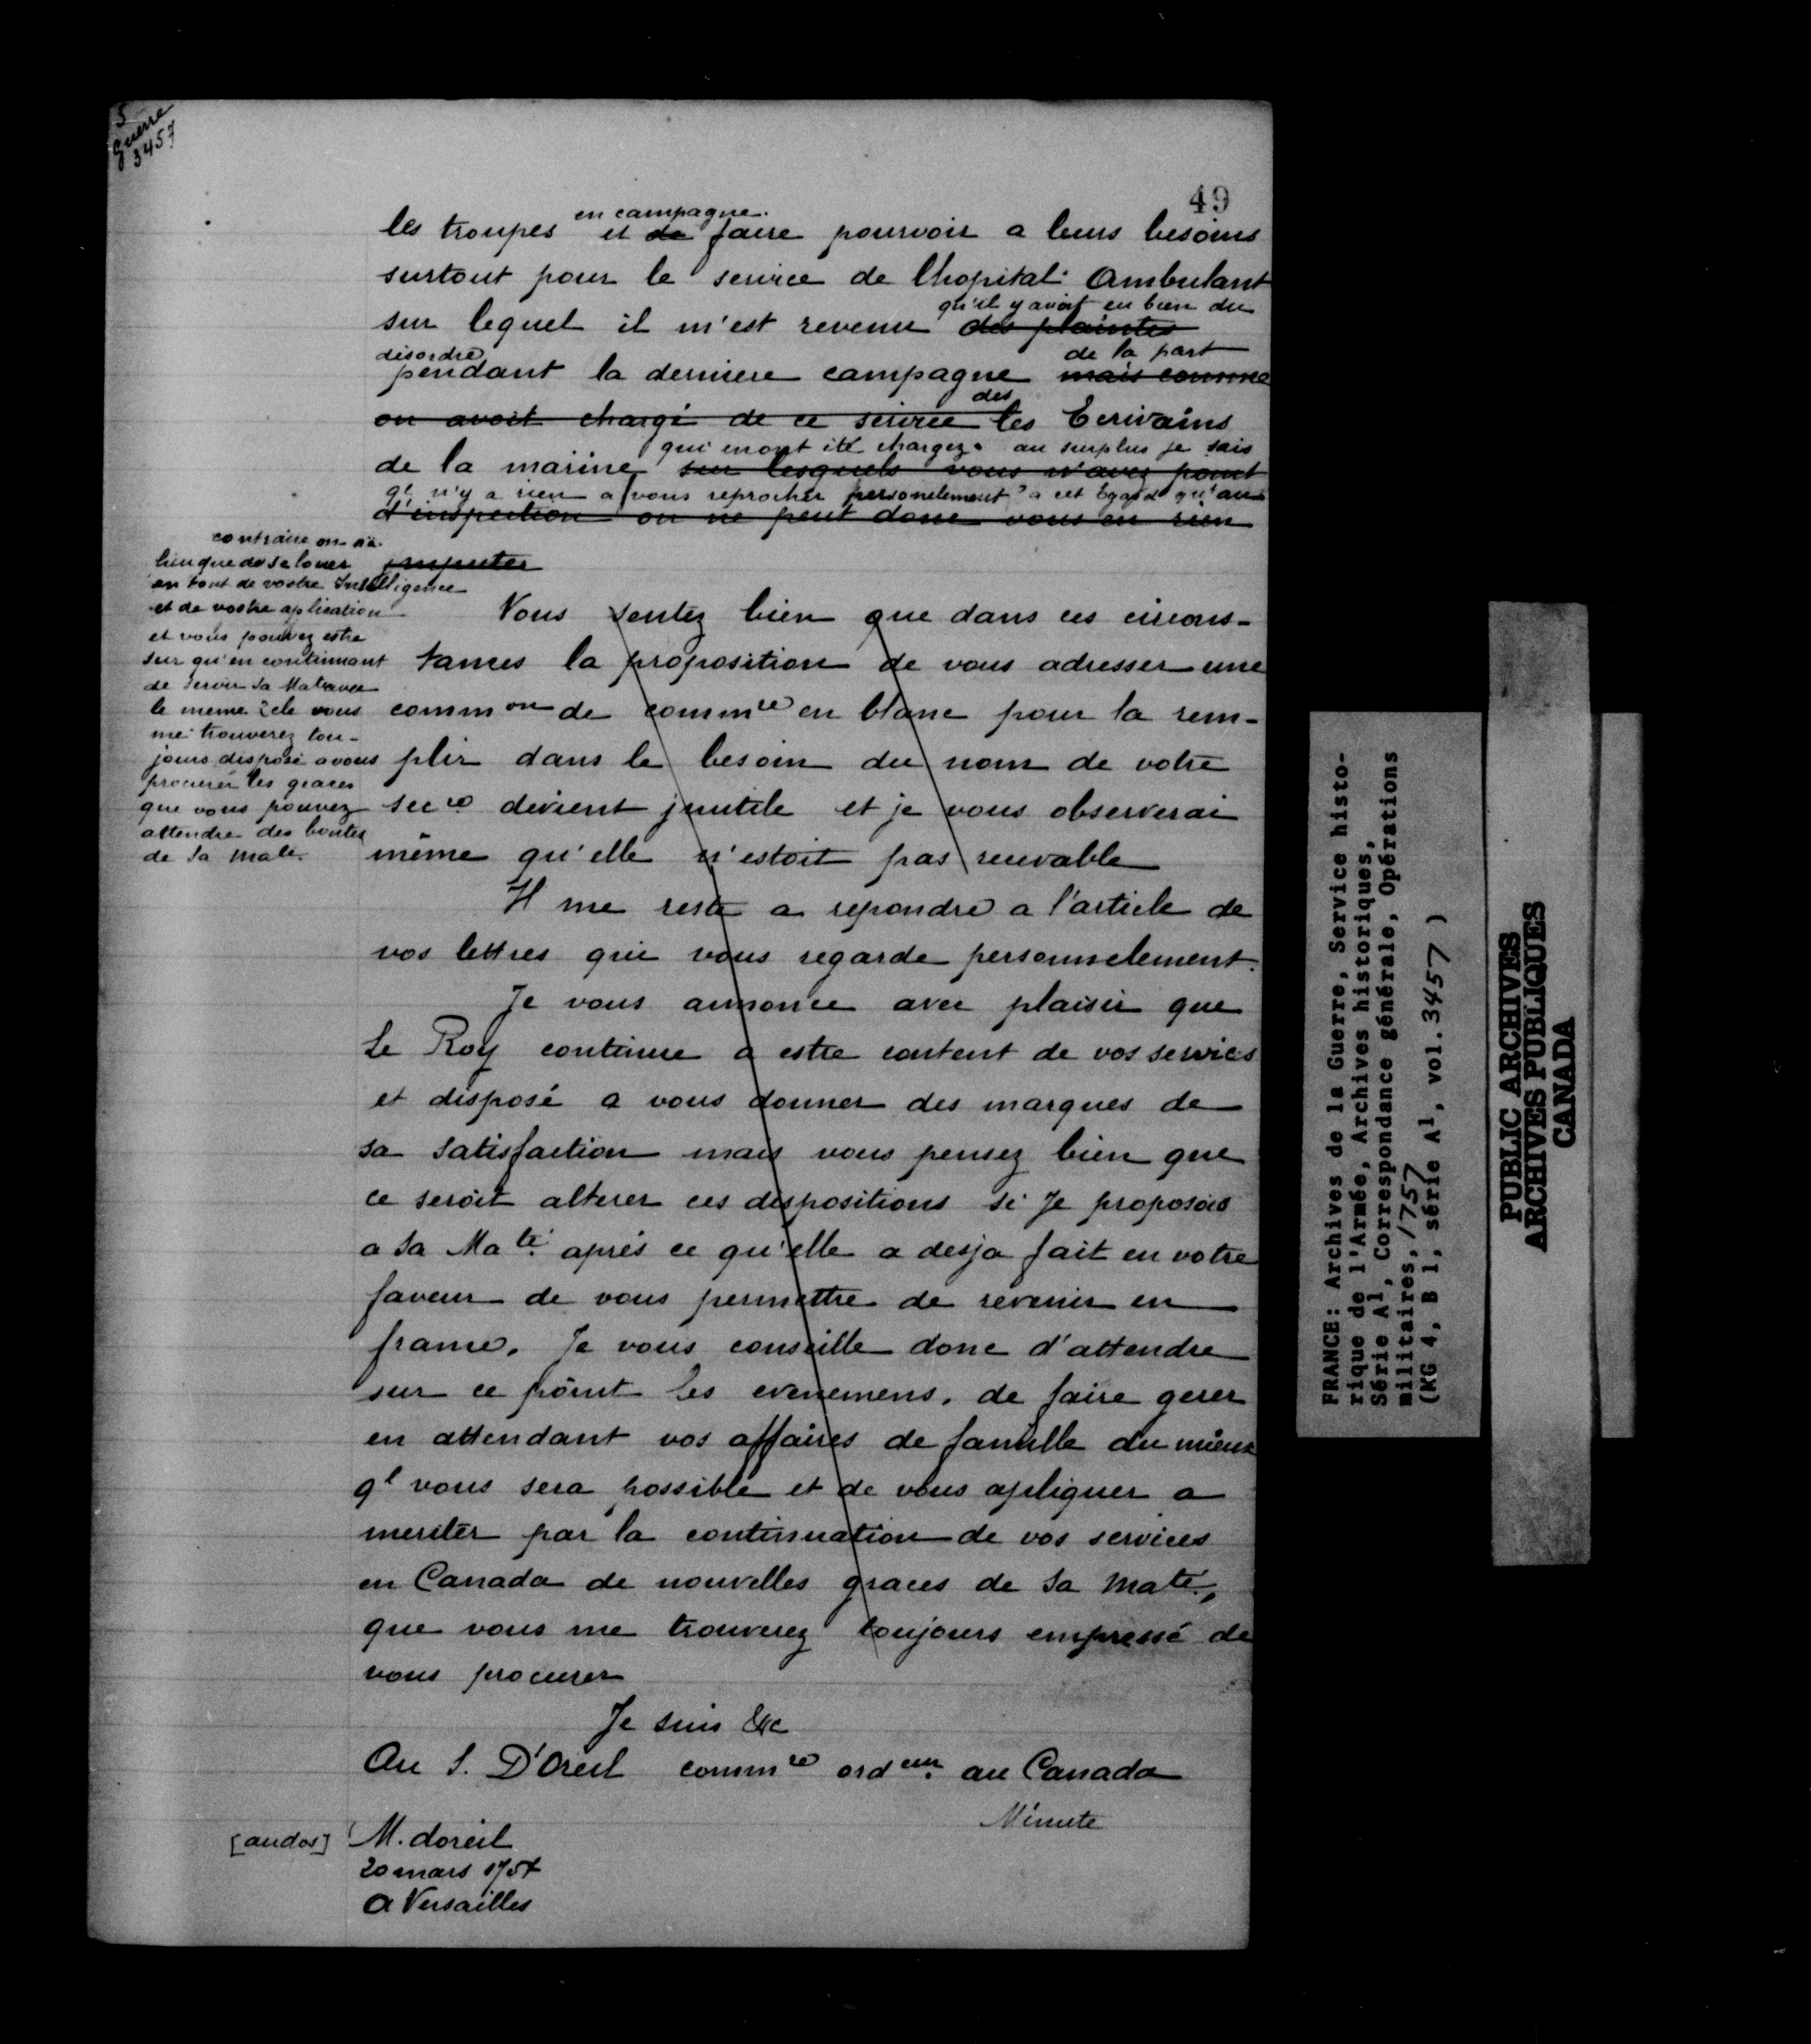 S
Guerre
3457
49
en campagne.
les troupes et de faire pourvoir a leurs besoins
surtout pour le service de lhopital ambulant
qu'il y avoit eu bien du
sur lequel il m'est revenu des plaintes
desordre de la part
pendant la derniere campagne mais comme
des
on avoit chargé de ce service les Ecrivains
qui en ont été chargez. au surplus je sais
de la marine sur lesquels vous n'avez point
ql n'y a rien a vous reprocher personelement a cet Egard qu'au
d'inspection on ne peut donc vous en rien
contraire on n'a
lieu que de se louer imputer
en tout de vostre Intelligence
et de vostre aplication
et vous pouvez estre
sur qu'en continuant
de servir Sa Mate avec
le meme zele vous
me trouverez tou-
jours disposé a vous
procurer les graces
que vous pouvez
attendre des bontes
de Sa Mate.
Vous sentez bien que dans ces circons-
tances la proposition de vous adresser une
common de commre en blanc pour la rem-
plir dans le besoin du nom de votre
secre devient jnutile et je vous observerai
même qu'elle n'estoit pas recevable
Il me reste a repondre a l'article de
vos lettres qui vous regarde personnelement.
Je vous annonce avec plaisir que
Le Roy continue a estre content de vos services
et disposé a vous donner des marques de
sa satisfaction mais vous pensez bien que
ce seroit alterer ces dispositions si Je proposois
a Sa Maté après ce qu'elle a desja fait en votre
faveur de vous permettre de revenir en
france. Je vous conseille donc d'attendre
sur ce point les evenemens. de faire gerer
en attendant vos affaires de famille du mieux
ql vous sera possible et de vous apliquer a
meriter par la continuation de vos services
en Canada de nouvelles graces de Sa Maté,
que vous me trouverez toujours empressé de
vous procurer
Je suis &c
Au S. D'Oreil commre ordeur au Canada
Minute
[au dos] M. doreil
20 mars 1757
a Versailles
FRANCE: Archives de la Guerre, Service histo-
rique de l'Armée, Archives historiques,
Série A1, Correspondance générale, Opérations
militaires, 1757
(MG 4, B 1, série A1, vol. 3457 )
PUBLIC ARCHIVES
ARCHIVES PUBLIQUES
CANADA